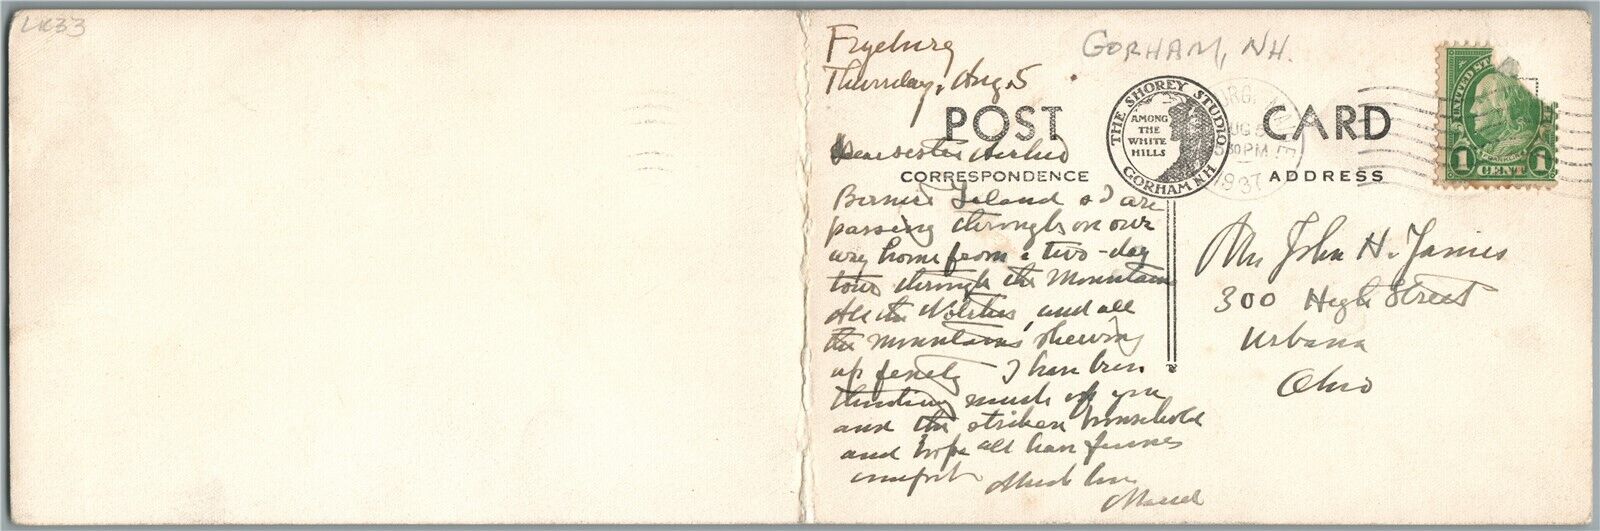 LK33
Fryeburg
Thursday, Aug 5
GORHAM, NH.
POST CARD
THE SHOREY STUDIO
AMONG
THE
WHITE
HILLS
GORHAM N.H.
AUG 5
30 PM
1937
MAINE
UNITED ST
FRANKLIN
1 CENT 1
CORRESPONDENCE
ADDRESS
Dear Sister
Bernice Leland & I are
passing through on our
way home from a two-day
tour through the Mountains
All the Notches, and all
the mountains showing
up finely I have been
thinking much of you
and the striken household
and hope all have
comfort Much love
John H. James
300 High Street
Urbana
Ohio